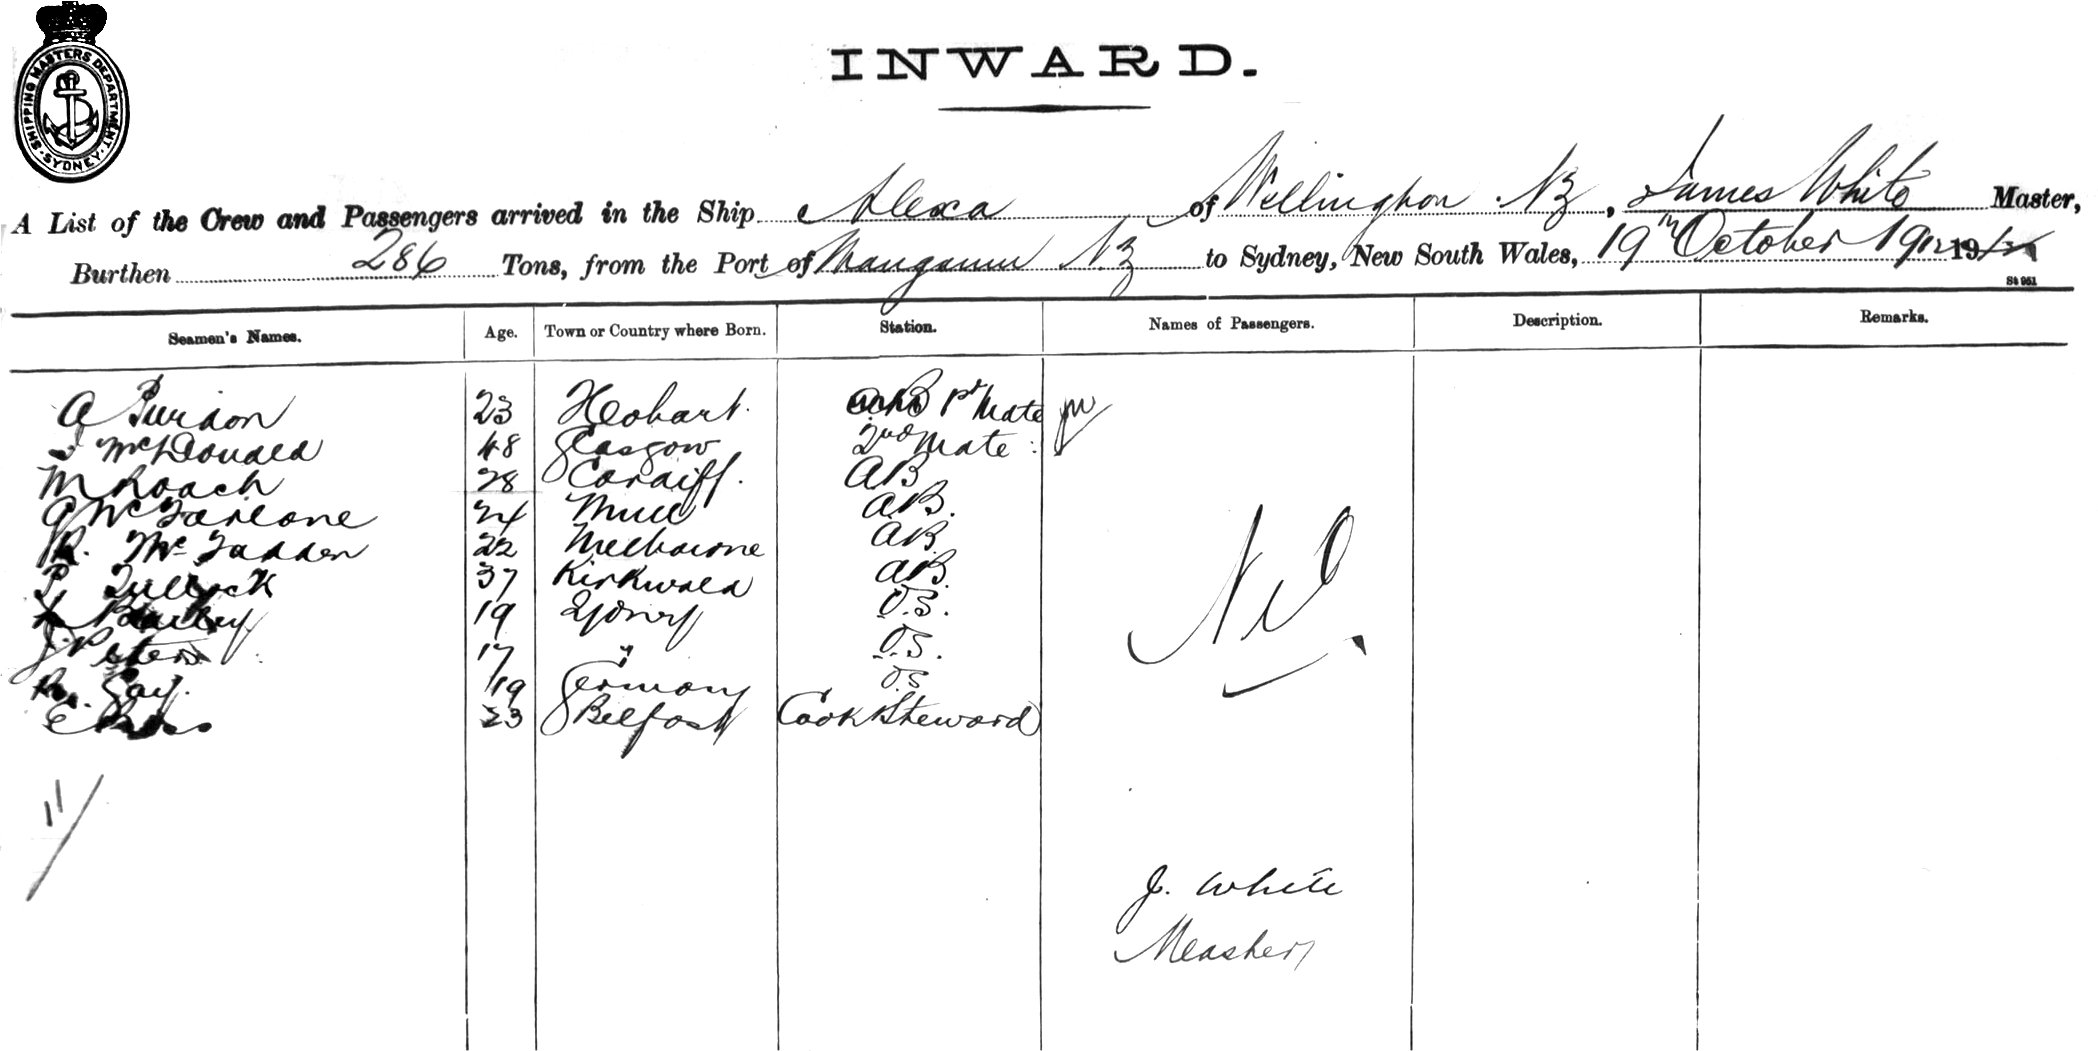 SHIPPING MASTERS DEPARTMENT. SYDNEY.
INWARD.
A List of the Crew and Passengers arrived in the Ship Alexa of Wellington NZ, James White Master,
Burthen 286 Tons, from the Port of N.Z to Sydney, New South Wales, 19th October 1912 19
St 951
Seamen's Names. Age. Town or Country where Born. Station. Names of Passengers. Description. Remarks.
A Purdon 23 Hobart. 1st Mate
McDonald 48 Glasgow 2nd Mate
M Roach 28 Cardiff. AB
A McFarlane 24 Mull A.B.
R. McFadden 22 Melbourne AB
P Tullock 37 Kirkwald AB.
Bailey 19 Sydney O.S.
J. Peters 17 " O.S.
R. Gay. 19 Germany O.S
E 23 Belfast Cook & Steward
Nil
11/
J. White
Master